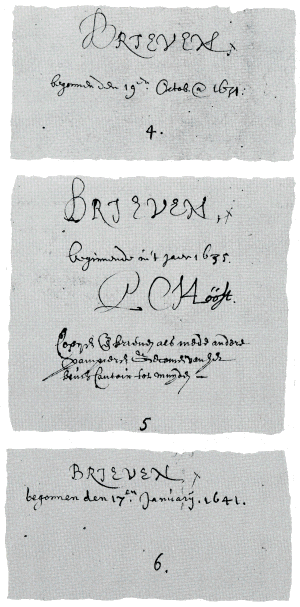 BRIEVEN,
begonnen den 19en. Octob. @ 1631.
4.
BRIEVEN,
beginnende in't Jaer 1635.
P C Hóóft.
Copye als mede andere
tot muyden
5
BRIEVEN
begonnen den 17en Januarij. 1641.
6.